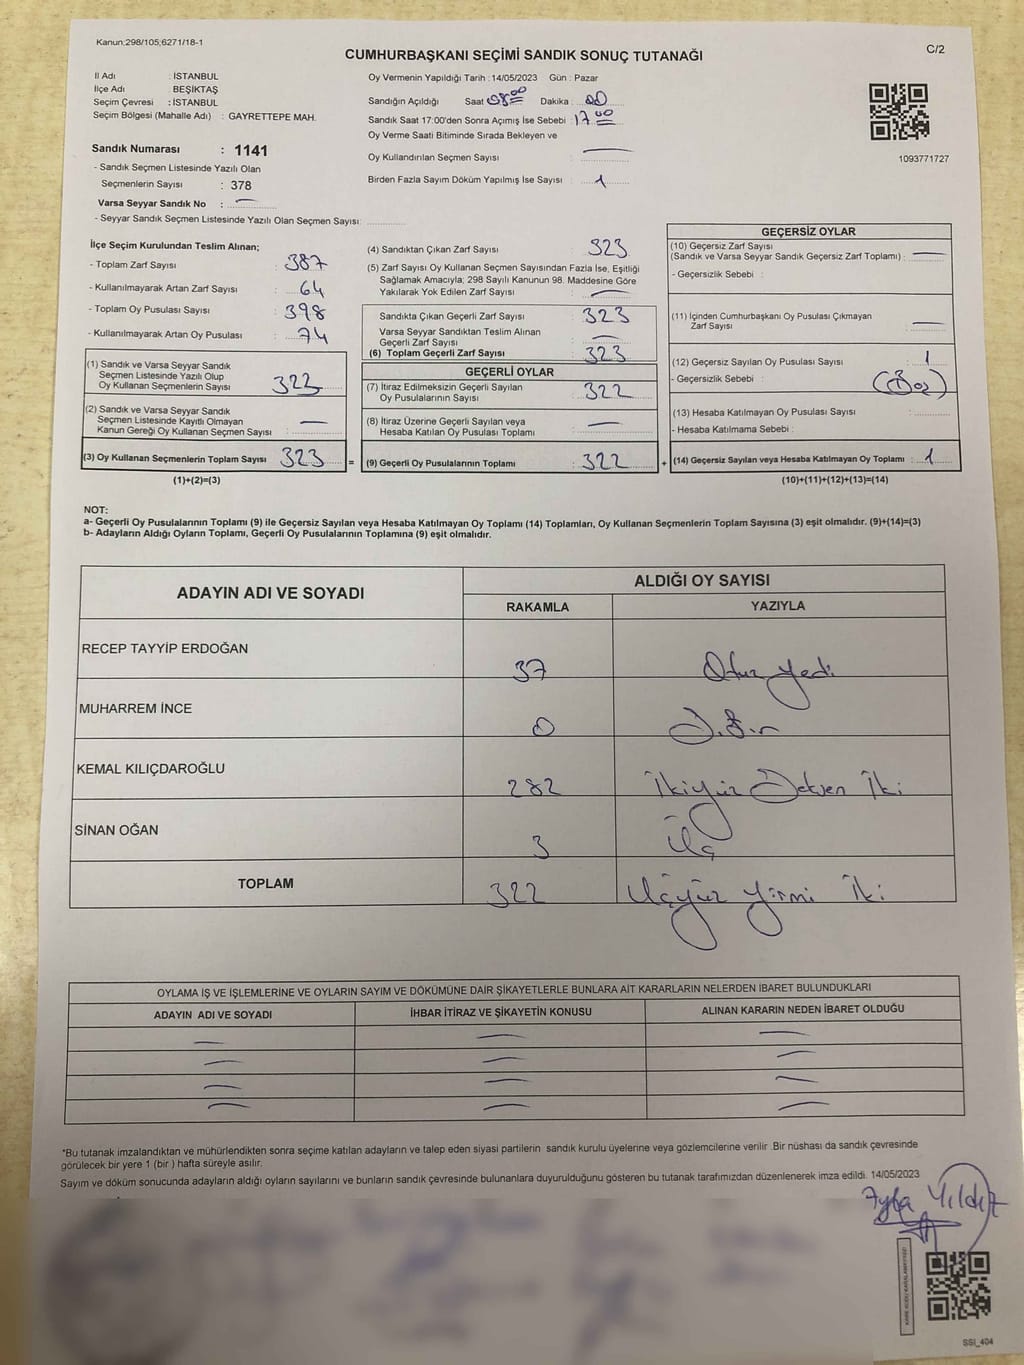 Kanun:298/105;6271/18-1
C/2
CUMHURBAŞKANI SEÇİMİ SANDIK SONUÇ TUTANAĞI
İl Adı : İSTANBUL
İlçe Adı : BEŞİKTAŞ
Seçim Çevresi : İSTANBUL
Seçim Bölgesi (Mahalle Adı) : GAYRETTEPE MAH.
Sandık Numarası : 1141
- Sandık Seçmen Listesinde Yazılı Olan
Seçmenlerin Sayısı : 378
Varsa Seyyar Sandık No : —
- Seyyar Sandık Seçmen Listesinde Yazılı Olan Seçmen Sayısı:
Oy Vermenin Yapıldığı Tarih : 14/05/2023 Gün : Pazar
Sandığın Açıldığı Saat 08:00 Dakika : 00
Sandık Saat 17:00'den Sonra Açımış İse Sebebi : 17 00
Oy Verme Saati Bitiminde Sırada Bekleyen ve
Oy Kullandırılan Seçmen Sayısı : —
Birden Fazla Sayım Döküm Yapılmış İse Sayısı : 1
1093771727
İlçe Seçim Kurulundan Teslim Alınan;
- Toplam Zarf Sayısı : 387
- Kullanılmayarak Artan Zarf Sayısı : 64
- Toplam Oy Pusulası Sayısı : 398
- Kullanılmayarak Artan Oy Pusulası : 74
(1) Sandık ve Varsa Seyyar Sandık
Seçmen Listesinde Yazılı Olup
Oy Kullanan Seçmenlerin Sayısı 323
(2) Sandık ve Varsa Seyyar Sandık
Seçmen Listesinde Kayıtlı Olmayan
Kanun Gereği Oy Kullanan Seçmen Sayısı : —
(3) Oy Kullanan Seçmenlerin Toplam Sayısı 323 =
(1)+(2)=(3)
(4) Sandıktan Çıkan Zarf Sayısı : 323
(5) Zarf Sayısı Oy Kullanan Seçmen Sayısından Fazla İse, Eşitliği
Sağlamak Amacıyla; 298 Sayılı Kanunun 98. Maddesine Göre
Yakılarak Yok Edilen Zarf Sayısı : —
Sandıkta Çıkan Geçerli Zarf Sayısı : 323
Varsa Seyyar Sandıktan Teslim Alınan
Geçerli Zarf Sayısı : —
(6) Toplam Geçerli Zarf Sayısı : 323
GEÇERLİ OYLAR
(7) İtiraz Edilmeksizin Geçerli Sayılan
Oy Pusulalarının Sayısı : 322
(8) İtiraz Üzerine Geçerli Sayılan veya
Hesaba Katılan Oy Pusulası Toplamı : —
(9) Geçerli Oy Pusulalarının Toplamı : 322 +
GEÇERSİZ OYLAR
(10) Geçersiz Zarf Sayısı
(Sandık ve Varsa Seyyar Sandık Geçersiz Zarf Toplamı) : —
- Geçersizlik Sebebi :
(11) İçinden Cumhurbaşkanı Oy Pusulası Çıkmayan
Zarf Sayısı : —
(12) Geçersiz Sayılan Oy Pusulası Sayısı : 1
- Geçersizlik Sebebi :
(13) Hesaba Katılmayan Oy Pusulası Sayısı :
- Hesaba Katılmama Sebebi :
(14) Geçersiz Sayılan veya Hesaba Katılmayan Oy Toplamı : 1
(10)+(11)+(12)+(13)=(14)
NOT:
a- Geçerli Oy Pusulalarının Toplamı (9) ile Geçersiz Sayılan veya Hesaba Katılmayan Oy Toplamı (14) Toplamları, Oy Kullanan Seçmenlerin Toplam Sayısına (3) eşit olmalıdır. (9)+(14)=(3)
b- Adayların Aldığı Oyların Toplamı, Geçerli Oy Pusulalarının Toplamına (9) eşit olmalıdır.
ADAYIN ADI VE SOYADI ALDIĞI OY SAYISI
RAKAMLA YAZIYLA
RECEP TAYYİP ERDOĞAN 37 Otuz yedi
MUHARREM İNCE 0
KEMAL KILIÇDAROĞLU 282 İkiyüz Seksen İki
SİNAN OĞAN 3 Üç
TOPLAM 322 Üçyüz yirmi İki
OYLAMA İŞ VE İŞLEMLERİNE VE OYLARIN SAYIM VE DÖKÜMÜNE DAİR ŞİKAYETLERLE BUNLARA AİT KARARLARIN NELERDEN İBARET BULUNDUKLARI
ADAYIN ADI VE SOYADI İHBAR İTİRAZ VE ŞİKAYETİN KONUSU ALINAN KARARIN NEDEN İBARET OLDUĞU
— — —
— — —
— — —
— — —
*Bu tutanak imzalandıktan ve mühürlendikten sonra seçime katılan adayların ve talep eden siyasi partilerin sandık kurulu üyelerine veya gözlemcilerine verilir. Bir nüshası da sandık çevresinde
görülecek bir yere 1 (bir ) hafta süreyle asılır.
Sayım ve döküm sonucunda adayların aldığı oyların sayılarını ve bunların sandık çevresinde bulunanlara duyurulduğunu gösteren bu tutanak tarafımızdan düzenlenerek imza edildi. 14/05/2023
Yıldız
KARE KODU KARALAMAYINIZ!
SSI_404